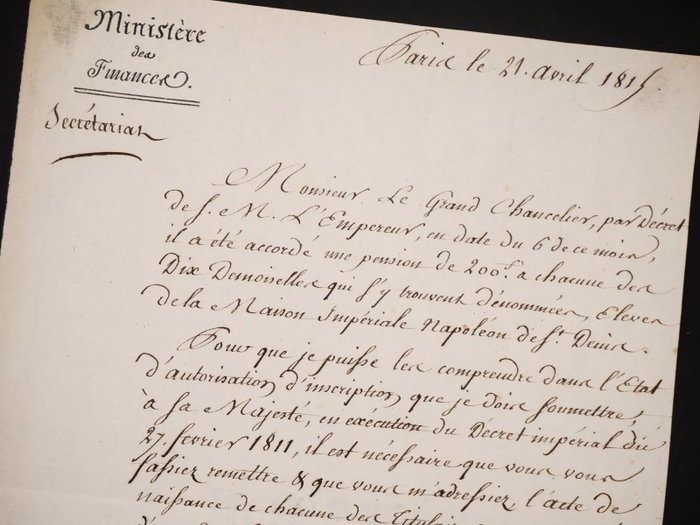 Ministère
des
Finances.
Secrétariat
Paris le 21. avril 1815.
Monsieur Le Grand Chancelier, par Décret
de S. M. L'Empereur, en date du 6 de ce mois,
il a été accordé une pension de 200.f à chacune des
Dix Demoiselles qui s'y trouvent dénommées, Eleves
de la Maison Impériale Napoléon de St. Denis.
Pour que je puisse les comprendre dans l'Etat
d'autorisation d'inscription que je dois soumettre
à Sa Majesté, en exécution du Decret impérial du
27. fevrier 1811, il est nécessaire que vous vous
fassiez remettre & que vous m'adressiez, l'acte de
naissance de chacune des Titulaires